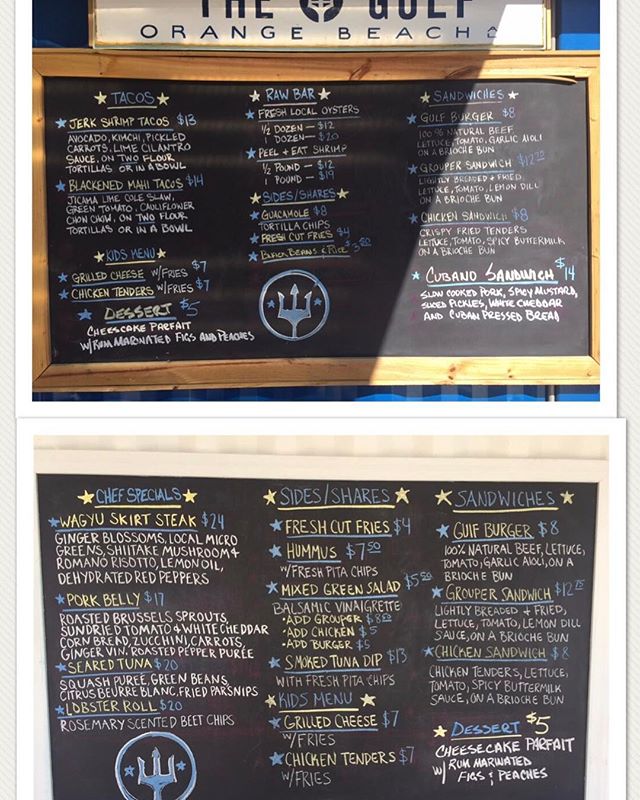 THE GULF
ORANGE BEACH
TACOS
JERK SHRIMP TACOS $13
AVOCADO, KIMCHI, PICKLED
CARROTS, LIME CILANTRO
SAUCE, ON TWO FLOUR
TORTILLAS OR IN A BOWL
BLACKENED MAHI TACOS $14
JICAMA LIME COLE SLAW,
GREEN TOMATO, CAULIFLOWER
CHOW CHOW, ON TWO FLOUR
TORTILLAS OR IN A BOWL
KIDS MENU
GRILLED CHEESE W/FRIES $7
CHICKEN TENDERS W/FRIES $7
DESSERT $5
CHEESCAKE PARFAIT
W/RUM MARINATED FIGS AND PEACHES
RAW BAR
FRESH LOCAL OYSTERS
1/2 DOZEN — $12
1 DOZEN — $20
PEEL + EAT SHRIMP
1/2 POUND — $12
1 POUND — $19
SIDES/SHARES
GUACAMOLE $8
TORTILLA CHIPS
FRESH CUT FRIES $4
BLACK BEANS & RICE
SANDWICHES
GULF BURGER $8
100% NATURAL BEEF,
LETTUCE, TOMATO, GARLIC AIOLI
ON A BRIOCHE BUN
GROUPER SANDWICH
LIGHTLY BREADED & FRIED,
LETTUCE, TOMATO, LEMON DILL
ON A BRIOCHE BUN
CHICKEN SANDWICH $8
CRISPY FRIED TENDERS
LETTUCE, TOMATO, SPICY BUTTERMILK
ON A BRIOCHE BUN
CUBANO SANDWICH $14
SLOW COOKED PORK, SPICY MUSTARD,
SLICED PICKLES, WHITE CHEDDAR
AND CUBAN PRESSED BREAD
CHEF SPECIALS
WAGYU SKIRT STEAK $24
GINGER BLOSSOMS, LOCAL MICRO
GREENS, SHIITAKE MUSHROOM &
ROMANO RISOTTO, LEMON OIL,
DEHYDRATED RED PEPPERS
PORK BELLY $17
ROASTED BRUSSELS SPROUTS,
SUNDRIED TOMATO & WHITE CHEDDAR
CORN BREAD, ZUCCHINI, CARROTS,
GINGER VIN. ROASTED PEPPER PURÉE
SEARED TUNA $20
SQUASH PURÉE, GREEN BEANS,
CITRUS BEURRE BLANC, FRIED PARSNIPS
LOBSTER ROLL $20
ROSEMARY SCENTED BEET CHIPS
SIDES/SHARES
FRESH CUT FRIES $4
HUMMUS $7.50
W/FRESH PITA CHIPS
MIXED GREEN SALAD $5.50
BALSAMIC VINAIGRETTE
•ADD GROUPER $8.50
•ADD CHICKEN $5
•ADD BURGER $5
SMOKED TUNA DIP $13
WITH FRESH PITA CHIPS
KIDS MENU
GRILLED CHEESE $7
W/FRIES
CHICKEN TENDERS $7
W/FRIES
SANDWICHES
GULF BURGER $8
100% NATURAL BEEF, LETTUCE,
TOMATO, GARLIC AIOLI, ON A
BRIOCHE BUN
GROUPER SANDWICH $12.75
LIGHTLY BREADED & FRIED,
LETTUCE, TOMATO, LEMON DILL
SAUCE, ON A BRIOCHE BUN
CHICKEN SANDWICH $8
CHICKEN TENDERS, LETTUCE,
TOMATO, SPICY BUTTERMILK
SAUCE, ON A BRIOCHE BUN
DESSERT $5
CHEESECAKE PARFAIT
W/ RUM MARINATED
FIGS & PEACHES